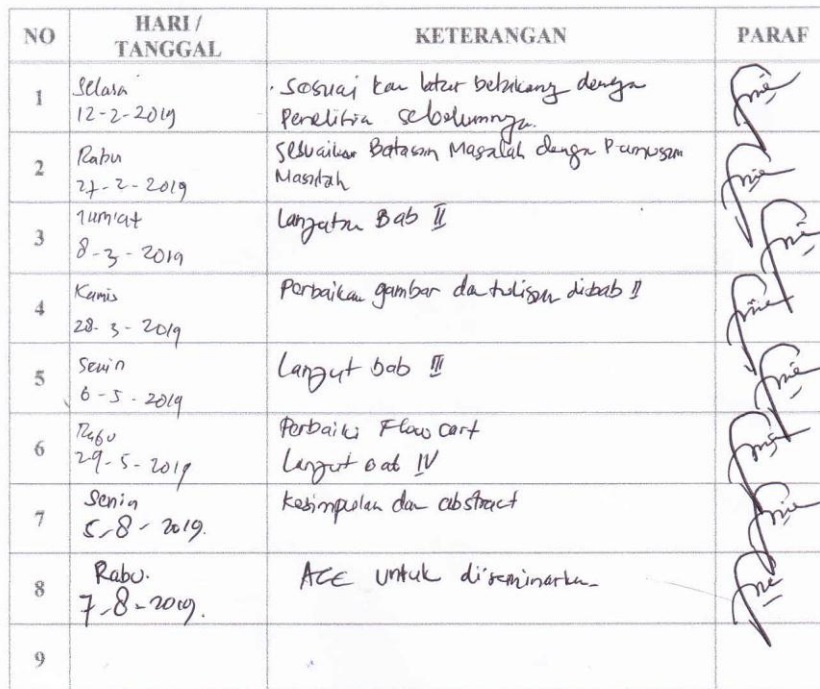 NO HARI / TANGGAL KETERANGAN PARAF
1 Selasa 12-2-2019
Sesuai kan latar belakang dengan
Penelitian sebelumnya.
2 Rabu 27-2-2019
Sesuaikan Batasan Masalah dengan Rumusan
Masalah
3 Jum'at 8-3-2019
Lanjutan Bab II
4 Kamis 28-3-2019
Perbaikan gambar dan tulisan dibab II
5 Senin 6-5-2019
Lanjut bab III
6 Rabu 29-5-2019
Perbaiki Flow cart
Lanjut Bab IV
7 Senin 5-8-2019.
Kesimpulan dan abstract
8 Rabu. 7-8-2019.
ACC untuk diseminarkan
9